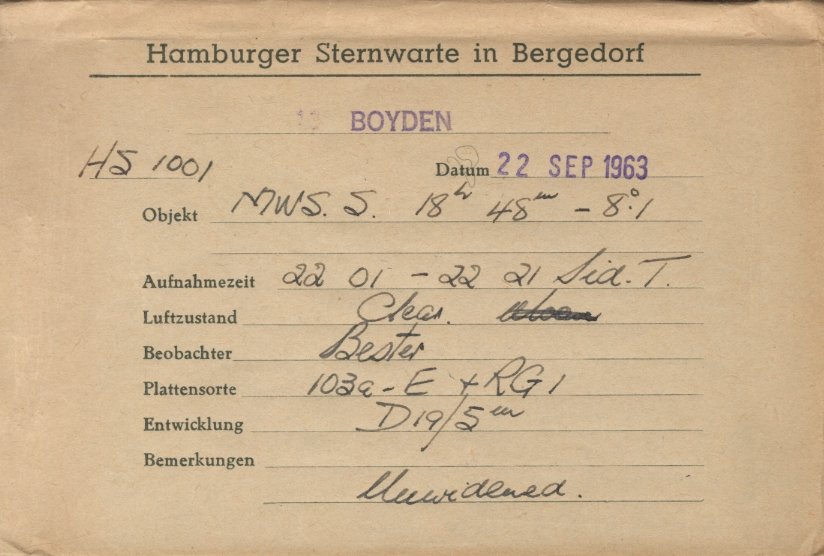 Hamburger Sternwarte in Bergedorf
BOYDEN
HS 1001
Datum 22 SEP 1963
Objekt MWS. S. 18h 48m - 8°.1
Aufnahmezeit 22 01 - 22 21 Sid. T.
Luftzustand Clear.
Beobachter Bester
Plattensorte 103a-E + RG1
Entwicklung D19/5m
Bemerkungen
Unwidened.